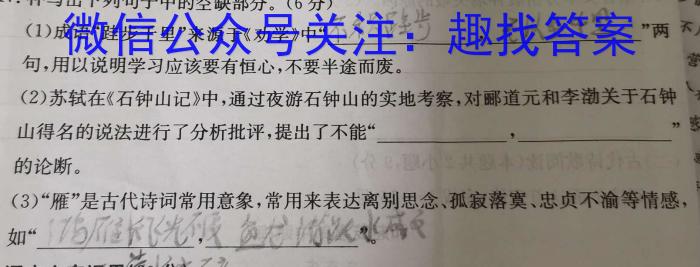 补写出下列句子中的空缺部分。(6分)
(1)成语“跬步千里”来源于《劝学》中“____,____”两
微信公众号关注：趣找答案
句,用以说明学习应该要有恒心,不要半途而废。
(2)苏轼在《石钟山记》中,通过夜游石钟山的实地考察,对郦道元和李渤关于石钟
山得名的说法进行了分析批评,提出了不能“____,____”
的论断。
(3)“雁”是古代诗词常用意象,常用来表达离别思念、孤寂落寞、忠贞不渝等情感,
如“鸿雁长飞光不度,鱼龙潜跃水成文”。